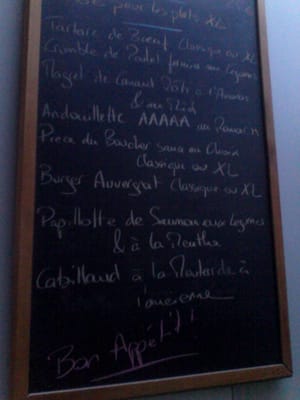 pour les plats XL
Tartare de Boeuf Classique ou XL
Crumble de Poulet fermier aux Légumes
Maget de Canard Rôti à l'Ananas
& au Miel
Andouillette AAAAA au Romarin
Piece du Boucher sauce au Choix
Classique ou XL
Burger Auvergnat Classique ou XL
Papillotte de Saumon aux Légumes
& à la Menthe
Cabillaud à la Moutarde à
l'ancienne
Bon Appétit !